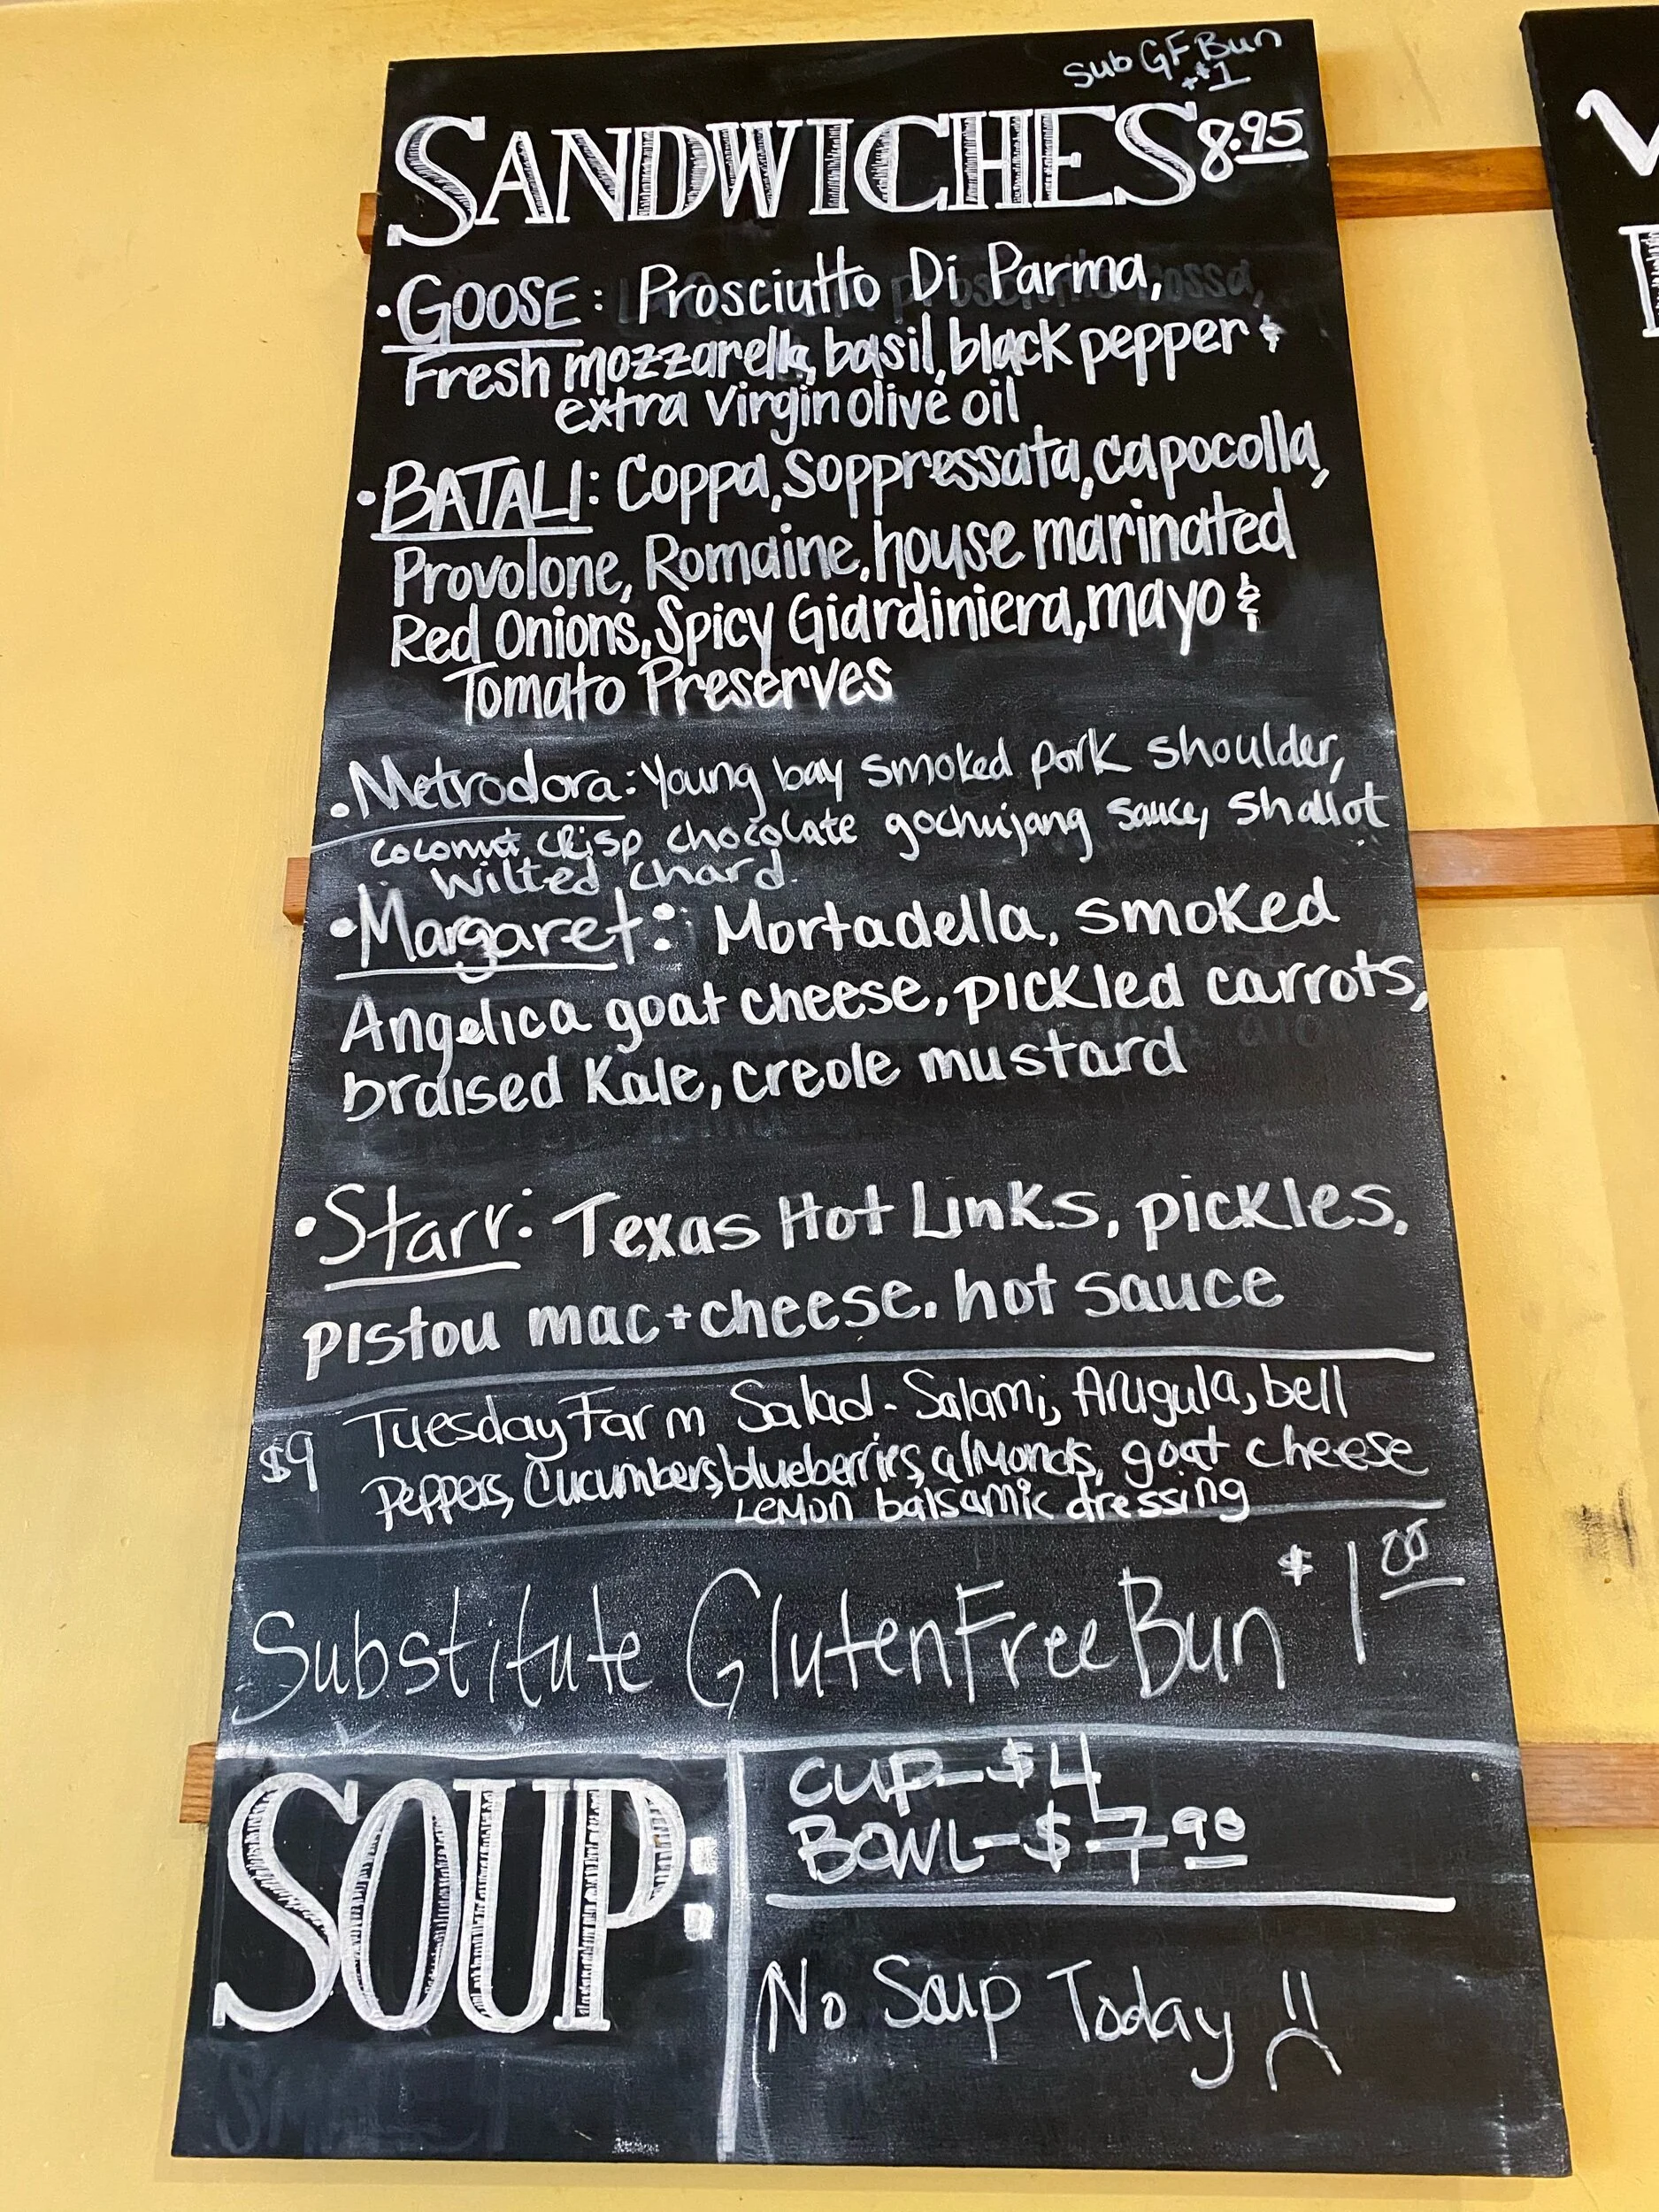 Sub GF Bun
+$1
SANDWICHES 8.95
• GOOSE: Prosciutto Di Parma,
Fresh mozzarella, basil, black pepper &
extra virgin olive oil
• BATALI: Coppa, Soppressata, capocolla,
Provolone, Romaine, house marinated
Red Onions, Spicy Giardiniera, mayo &
Tomato Preserves
• Metrodora: Young bay smoked pork shoulder,
coconut crisp chocolate gochujang sauce, shallot
wilted chard.
• Margaret: Mortadella, smoked
Angelica goat cheese, pickled carrots,
braised Kale, creole mustard
• Starr: Texas Hot Links, pickles,
pistou mac+cheese. hot sauce
Tuesday Farm Salad - Salami, Arugula, bell
$9 Peppers, Cucumbers, blueberries, almonds, goat cheese
Lemon balsamic dressing
Substitute Gluten Free Bun $1.00
SOUP:
CUP - $4
BOWL - $7.90
No Soup Today